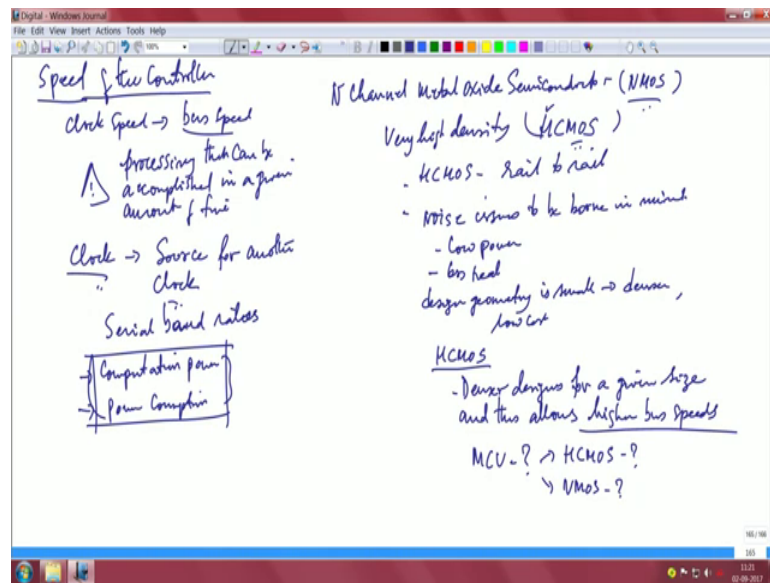 Digital - Windows Journal
File Edit View Insert Actions Tools Help
100%
Speed of the Controller
Clock Speed → bus Speed
processing that can be
accomplished in a given
amount of time
Clock → Source for another
Clock
Serial baud rates
→ Computation power
→ Power Comption
N Channel Metal Oxide Semiconductor - (NMOS)
Very high density (HCMOS)
- HCMOS - rail to rail
- Noise issues to be borne in mind
- Low power
- less heat
design geometry is small → denser,
low cost
HCMOS
- Denser designs for a given size
and this allows higher bus speeds
MCU - ? → HCMOS - ?
↘ NMOS - ?
165 / 166
165
11:21
02-09-2017